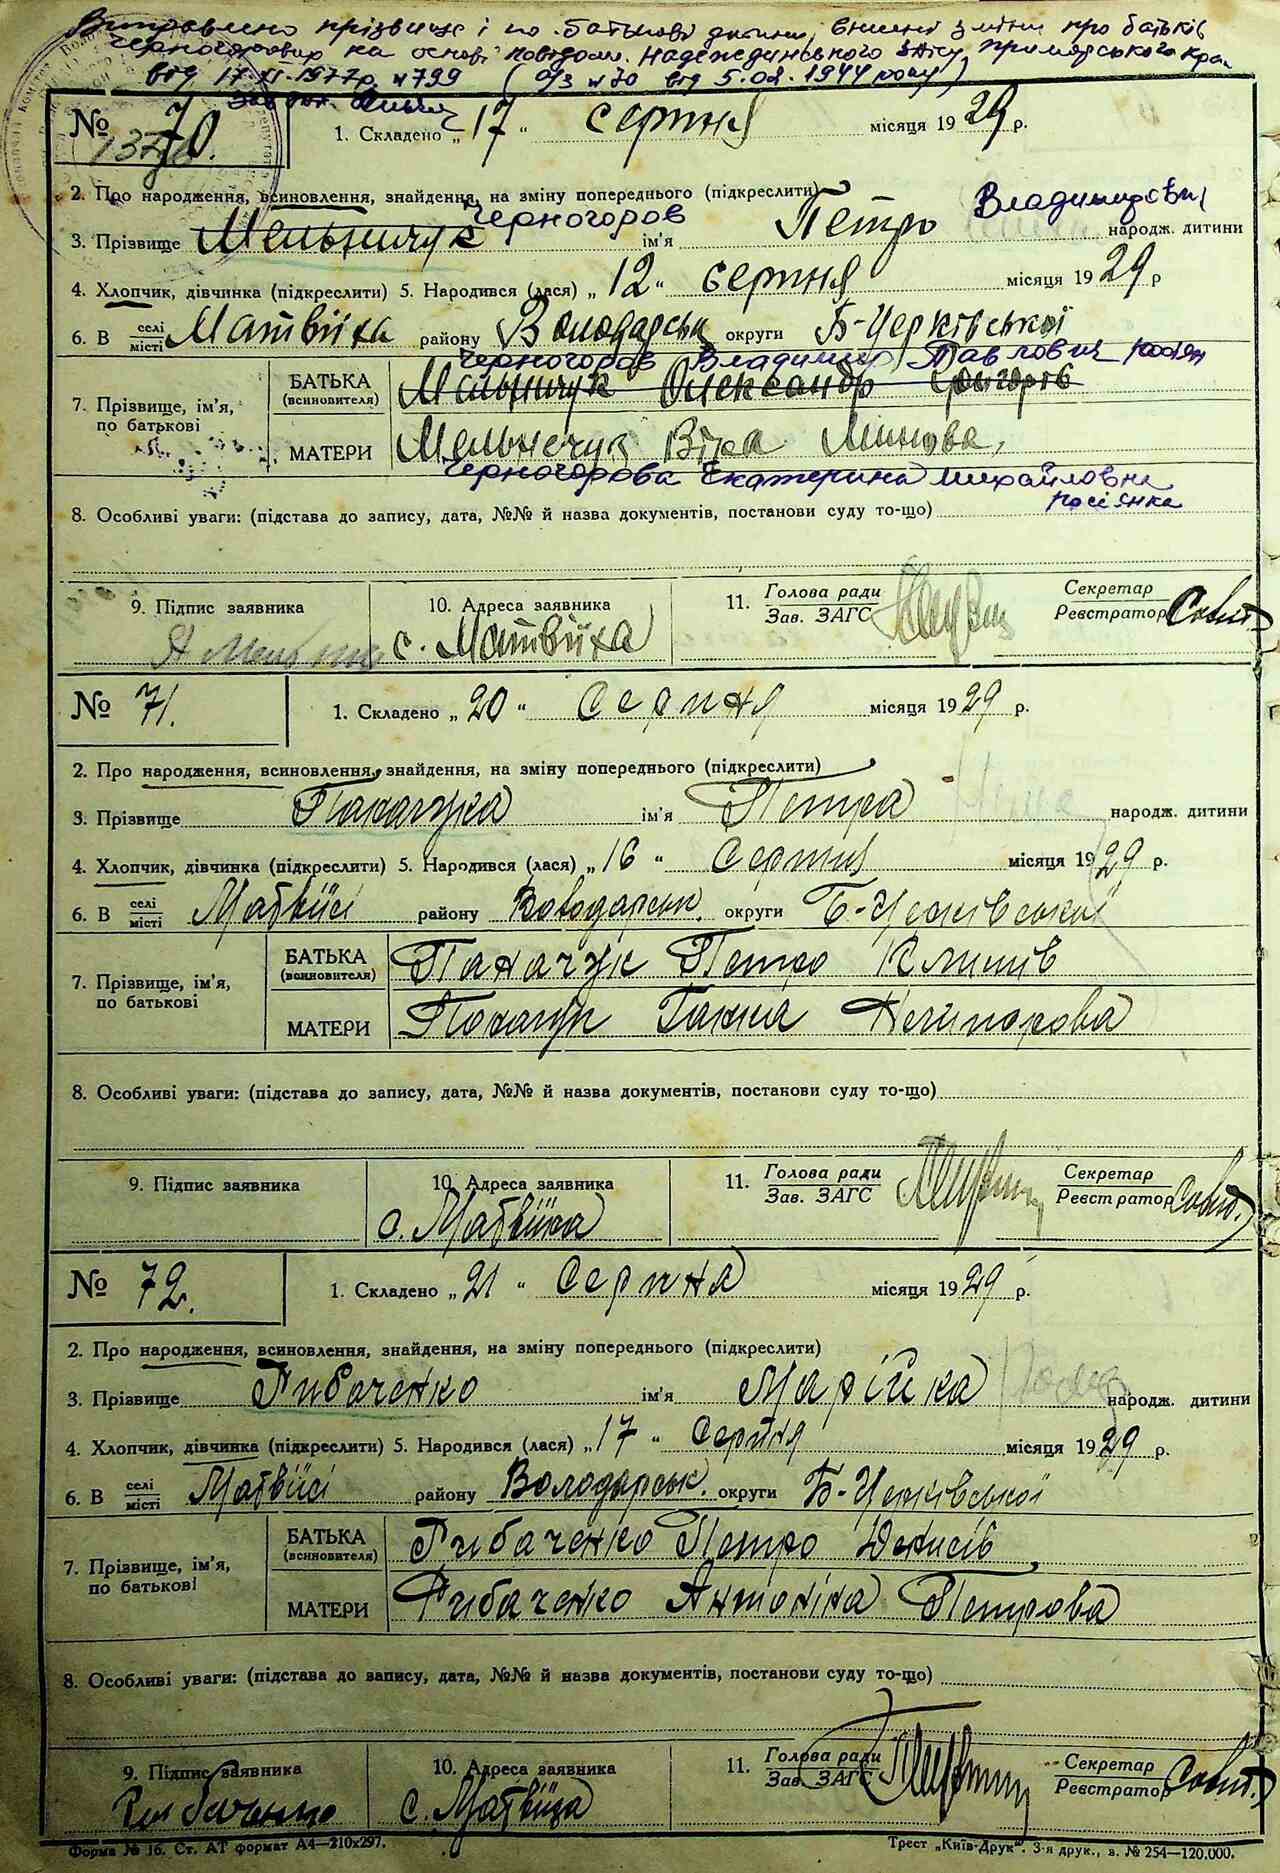 Виправлено прізвище і по батькові дитини, внесені зміни про батьків
Черногорових на основі повідом. Надеждинського ЗАГСу, Приморського краю
від 17.XI.1977р. №799 ( а/з №70 від 5.02.1944 року)
№ 70.
1. Складено „17“ серпня місяця 1929 р.
2. Про народження, всиновлення, знайдення, на зміну попереднього (підкреслити)
Черногоров Владимирович
3. Прізвище Мельничук ім'я Петро народж. дитини
4. Хлопчик, дівчинка (підкреслити) 5. Народився (лася) „12“ серпня місяця 1929 р
6. В селі/місті Матвіїха району Володарськ округи Б-Церківської
Черногоров Владимир Павлович росіян
7. Прізвище, ім'я, по батькові
БАТЬКА (всиновителя) Мельничук Олександр Григорів
МАТЕРИ Мельнечук Віра Минова,
Черногорова Екатерина Михайловна
росіянка
8. Особливі уваги: (підстава до запису, дата, №№ й назва документів, постанови суду то-що)
9. Підпис заявника
10. Адреса заявника
с. Матвіїха
11. Голова ради
Зав. ЗАГС
Секретар
Реєстратор
№ 71.
1. Складено „20“ Серпня місяця 1929 р.
2. Про народження, всиновлення, знайдення, на зміну попереднього (підкреслити)
3. Прізвище ім'я Петра народж. дитини
4. Хлопчик, дівчинка (підкреслити) 5. Народився (лася) „16“ Серпня місяця 1929 р.
6. В селі/місті Матвіїсі району Володарськ. округи Б-Церківської
7. Прізвище, ім'я, по батькові
БАТЬКА (всиновителя) Паначук Петро Климів
МАТЕРИ Ганна Нечипорова
8. Особливі уваги: (підстава до запису, дата, №№ й назва документів, постанови суду то-що)
9. Підпис заявника
10. Адреса заявника
с. Матвіїха
11. Голова ради
Зав. ЗАГС
Секретар
Реєстратор
№ 72.
1. Складено „21“ Серпня місяця 1929 р.
2. Про народження, всиновлення, знайдення, на зміну попереднього (підкреслити)
3. Прізвище Рибаченко ім'я Марійка народж. дитини
4. Хлопчик, дівчинка (підкреслити) 5. Народився (лася) „17“ Серпня місяця 1929 р.
6. В селі/місті Матвіїсі району Володарськ. округи Б-Церківської
7. Прізвище, ім'я, по батькові
БАТЬКА (всиновителя) Рибаченко Петро Денисів
МАТЕРИ Рибаченко Антоніна Петрова
8. Особливі уваги: (підстава до запису, дата, №№ й назва документів, постанови суду то-що)
9. Підпис заявника
Рибаченко
10. Адреса заявника
с. Матвіїха
11. Голова ради
Зав. ЗАГС
Секретар
Реєстратор
Форма № 16. Ст. АТ формат А4—210x297.
Трест „Київ-Друк“. 3-я друк., в. № 254—120.000.